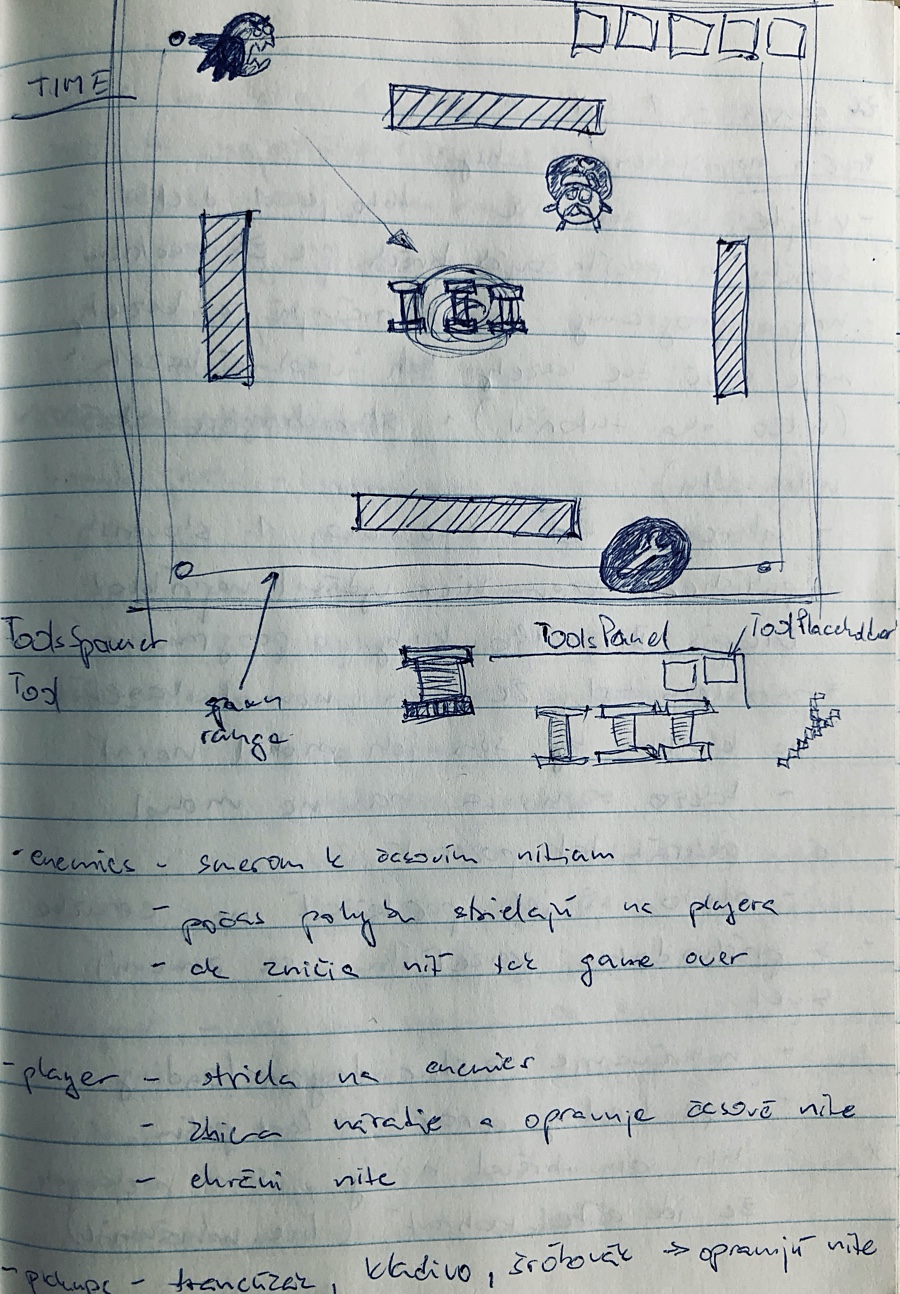 TIME
ToolsPanel
ToolPlaceholder
ToolsSpawner
Tool
spawn
range
• enemies - smerom k časovím nitiam
- počas pohybu strielajú na playera
- ak zničia niť tak game over
- player - striela na enemies
- zbiera náradie a opravuje časové nite
- chráni nite
- pickups - francúzak, kladivo, šróbovák → opravujú nite